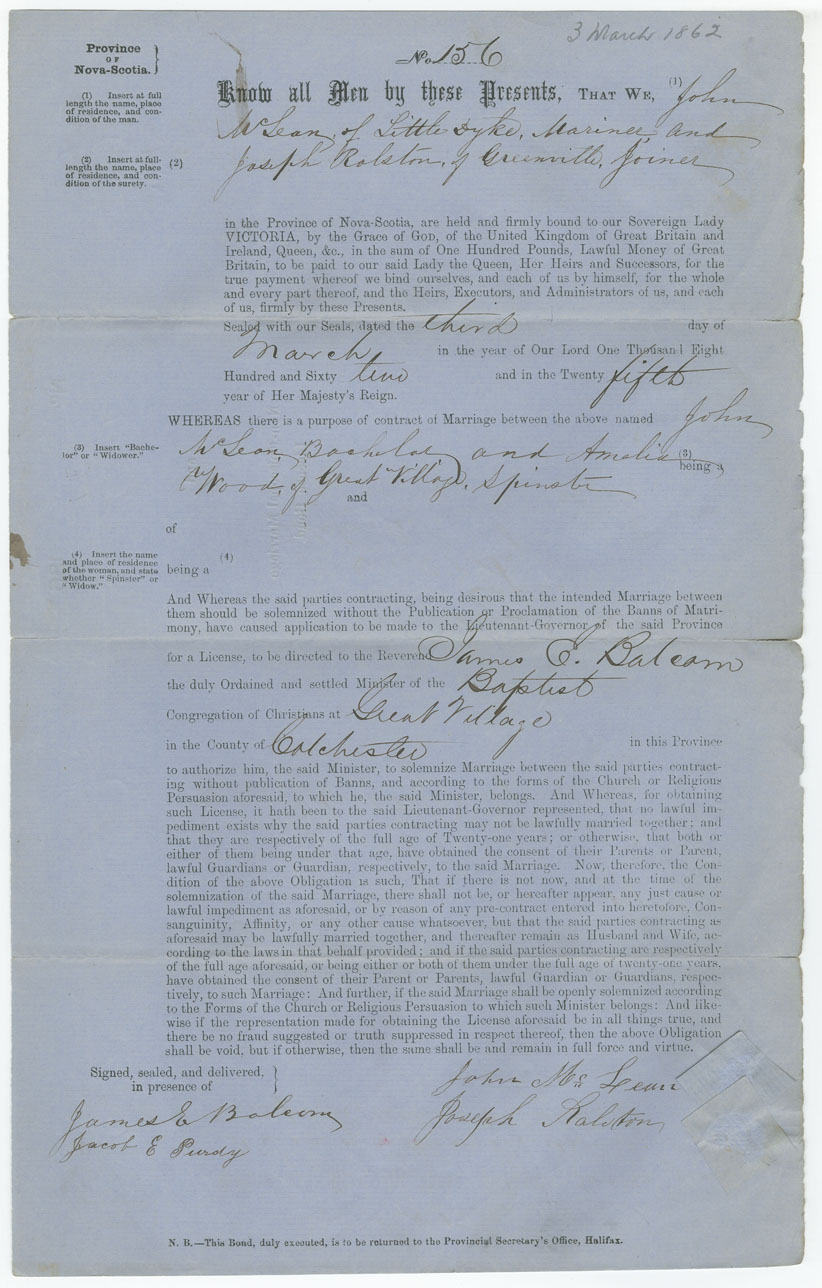 3 March 1862
Province
OF
Nova-Scotia.
No. 156
Know all Men by these Presents, THAT WE, (1) John
McLean, of Little Dyke, Mariner, and
(2) Joseph Ralston, of Greenville, Joiner
(1) Insert at full
length the name, place
of residence, and con-
dition of the man.
(2) Insert at full-
length the name, place
of residence, and con-
dition of the surety.
in the Province of Nova-Scotia, are held and firmly bound to our Sovereign Lady
VICTORIA, by the Grace of GOD, of the United Kingdom of Great Britain and
Ireland, Queen, &c., in the sum of One Hundred Pounds, Lawful Money of Great
Britain, to be paid to our said Lady the Queen, Her Heirs and Successors, for the
true payment whereof we bind ourselves, and each of us by himself, for the whole
and every part thereof, and the Heirs, Executors, and Administrators of us, and each
of us, firmly by these Presents.
Sealed with our Seals, dated the third day of
March in the year of Our Lord One Thousand Eight
Hundred and Sixty two and in the Twenty fifth
year of Her Majesty's Reign.
WHEREAS there is a purpose of contract of Marriage between the above named John
McLean, Bachelor and Amelia (3) being a
Wood, of Great Village, Spinster
and
(3) Insert "Bache-
lor" or "Widower."
of
(4)
being a
(4) Insert the name
and place of residence
of the woman, and state
whether "Spinster" or
"Widow."
And Whereas the said parties contracting, being desirous that the intended Marriage between
them should be solemnized without the Publication or Proclamation of the Banns of Matri-
mony, have caused application to be made to the Lieutenant-Governor of the said Province
for a License, to be directed to the Reverend James E. Balcam
the duly Ordained and settled Minister of the Baptist
Congregation of Christians at Great Village
in the County of Colchester in this Province
to authorize him, the said Minister, to solemnize Marriage between the said parties contract-
ing without publication of Banns, and according to the forms of the Church or Religious
Persuasion aforesaid, to which he, the said Minister, belongs. And Whereas, for obtaining
such License, it hath been to the said Lieutenant-Governor represented, that no lawful im-
pediment exists why the said parties contracting may not be lawfully married together; and
that they are respectively of the full age of Twenty-one years; or otherwise, that both or
either of them being under that age, have obtained the consent of their Parents or Parent,
lawful Guardians or Guardian, respectively, to the said Marriage. Now, therefore, the Con-
dition of the above Obligation is such, That if there is not now, and at the time of the
solemnization of the said Marriage, there shall not be, or hereafter appear, any just cause or
lawful impediment as aforesaid, or by reason of any pre-contract entered into heretofore, Con-
sanguinity, Affinity, or any other cause whatsoever, but that the said parties contracting as
aforesaid may be lawfully married together, and thereafter remain as Husband and Wife, ac-
cording to the laws in that behalf provided; and if the said parties contracting are respectively
of the full age aforesaid, or being either or both of them under the full age of twenty-one years,
have obtained the consent of their Parent or Parents, lawful Guardian or Guardians, respec-
tively, to such Marriage: And further, if the said Marriage shall be openly solemnized according
to the Forms of the Church or Religious Persuasion to which such Minister belongs: And like-
wise if the representation made for obtaining the License aforesaid be in all things true, and
there be no fraud suggested or truth suppressed in respect thereof, then the above Obligation
shall be void, but if otherwise, then the same shall be and remain in full force and virtue.
Signed, sealed, and delivered,
in presence of
John McLean
James E Balcom
Joseph Ralston
Jacob E Purdy
N. B.—This Bond, duly executed, is to be returned to the Provincial Secretary's Office, Halifax.